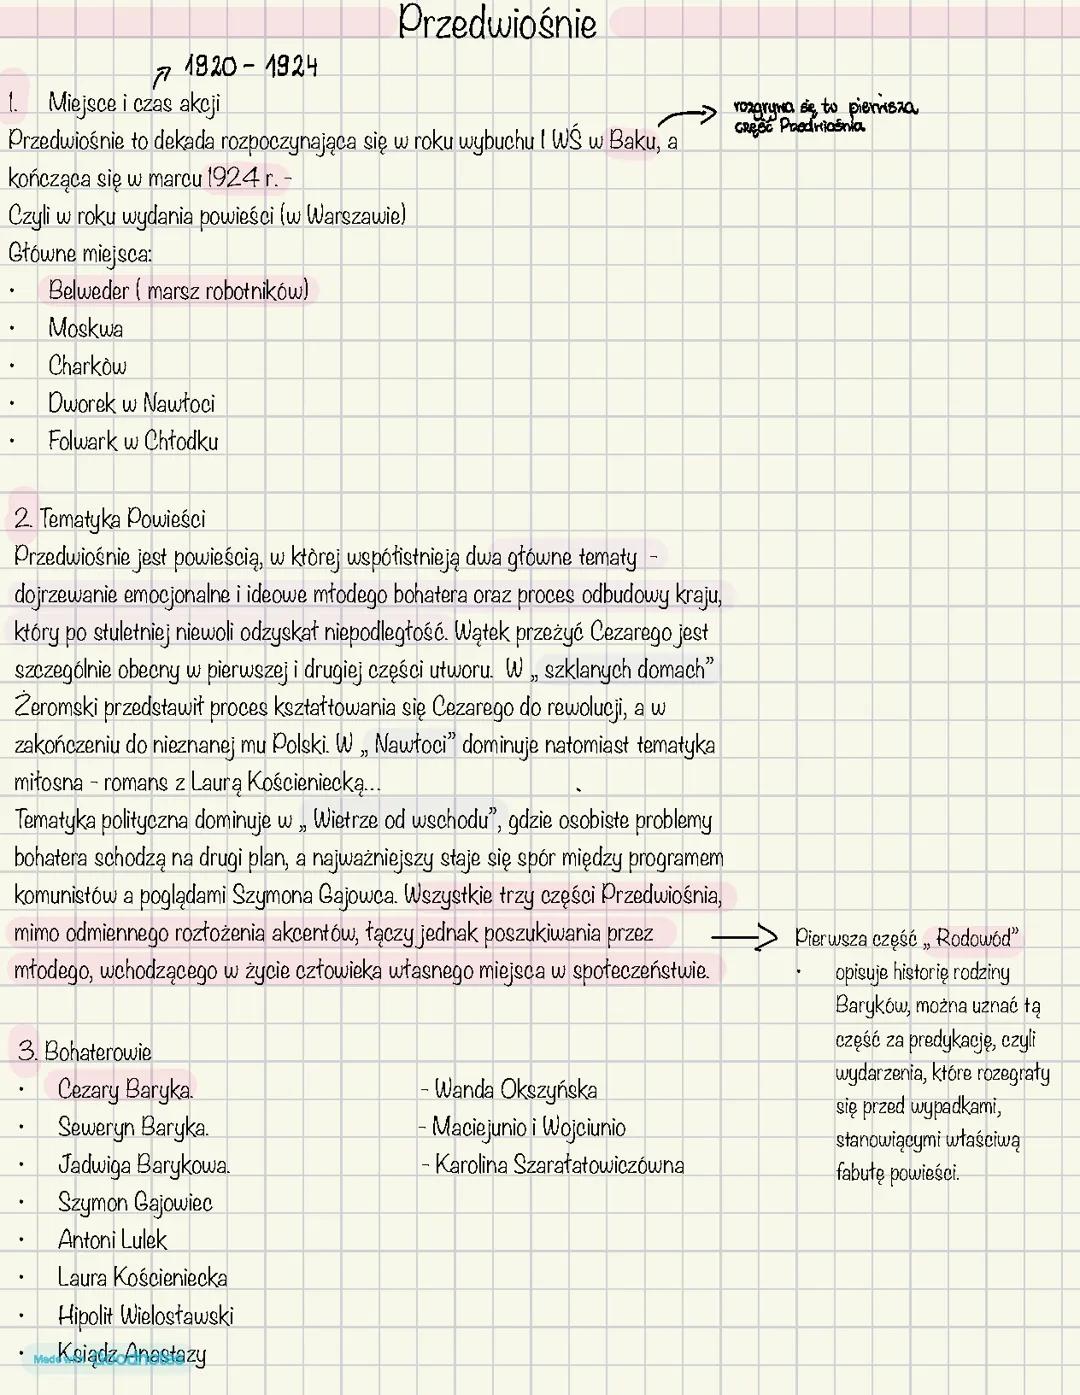 Przedwiośnie
1920 - 1924
1. Miejsce i czas akcji
rozgrywa się tu pierwsza
część Przedwiośnia
Przedwiośnie to dekada rozpoczynająca się w roku wybuchu I WŚ w Baku, a
kończąca się w marcu 1924 r. -
Czyli w roku wydania powieści (w Warszawie)
Główne miejsca:
• Belweder ( marsz robotników)
• Moskwa
• Charków
• Dworek w Nawłoci
• Folwark w Chłodku
2. Tematyka Powieści
Przedwiośnie jest powieścią, w której współistnieją dwa główne tematy -
dojrzewanie emocjonalne i ideowe młodego bohatera oraz proces odbudowy kraju,
który po stuletniej niewoli odzyskał niepodległość. Wątek przeżyć Cezarego jest
szczególnie obecny w pierwszej i drugiej części utworu. W „ szklanych domach”
Żeromski przedstawił proces kształtowania się Cezarego do rewolucji, a w
zakończeniu do nieznanej mu Polski. W „ Nawłoci” dominuje natomiast tematyka
miłosna - romans z Laurą Kościeniecką...
Tematyka polityczna dominuje w „ Wietrze od wschodu”, gdzie osobiste problemy
bohatera schodzą na drugi plan, a najważniejszy staje się spór między programem
komunistów a poglądami Szymona Gajowca. Wszystkie trzy części Przedwiośnia,
mimo odmiennego rozłożenia akcentów, łączy jednak poszukiwania przez
młodego, wchodzącego w życie człowieka własnego miejsca w społeczeństwie.
Pierwsza część „ Rodowód”
• opisuje historię rodziny
Baryków, można uznać tą
część za predykację, czyli
wydarzenia, które rozegrały
się przed wypadkami,
stanowiącymi właściwą
fabułę powieści.
3. Bohaterowie
• Cezary Baryka.
• Seweryn Baryka.
• Jadwiga Barykowa.
• Szymon Gajowiec
• Antoni Lulek
• Laura Kościeniecka
• Hipolit Wielosławski
• Ksiądz Anastazy
- Wanda Okszyńska
- Maciejunio i Wojciunio
- Karolina Szarałatowiczówna
Made with Goodnotes